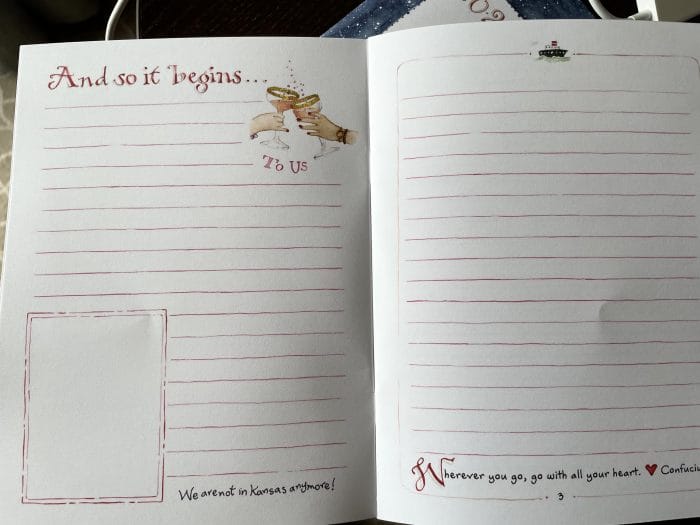 And so it begins...
To Us
We are not in Kansas anymore!
Wherever you go, go with all your heart. ♥ Confuciu
3